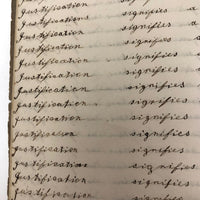 Justification signifies a
Justification signifies a
Justification signifies a
Justification signifies
Justification signifies
Justification signifies
Justification signifies
Justification signifies
Justification signifies
Justification signifies
Justification signifies
Justification signifies
Justification signifies